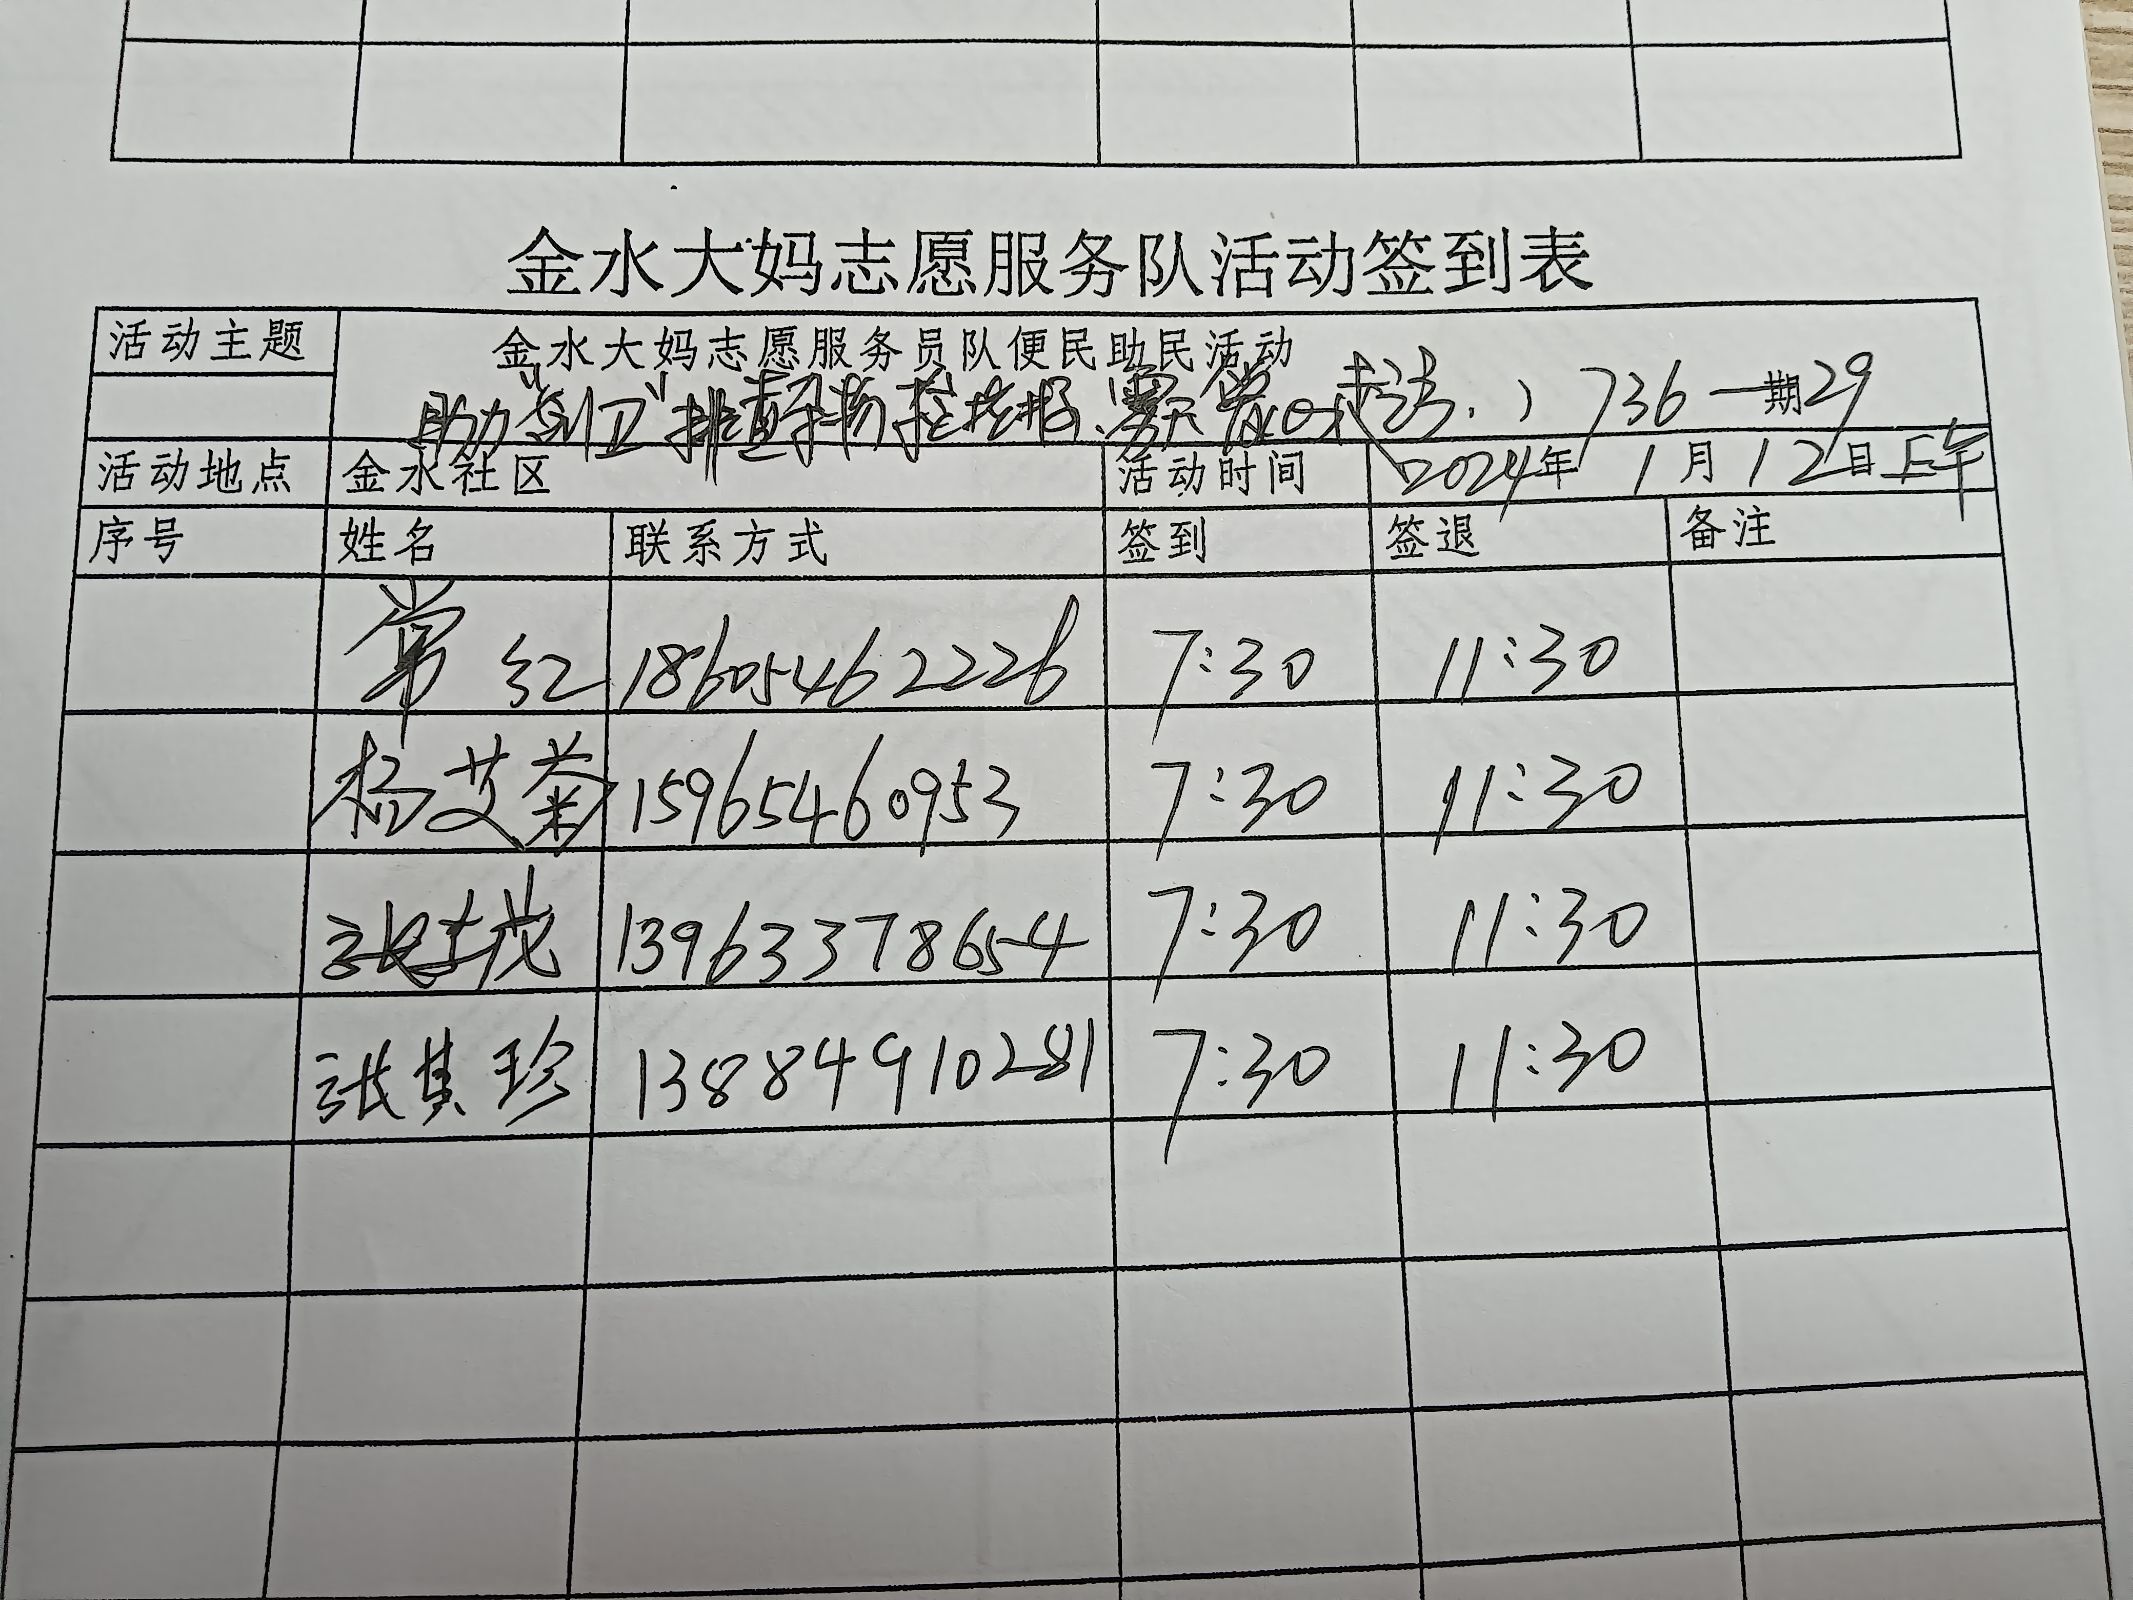 金水大妈志愿服务队活动签到表
活动主题 金水大妈志愿服务员队便民助民活动
助力"创卫"排查 736一期29
活动地点 金水社区 活动时间 2024年1月12日上午
序号 姓名 联系方式 签到 签退 备注
常红 18605462226 7:30 11:30
杨艾菊 15965460953 7:30 11:30
13963378654 7:30 11:30
张其珍 13884910281 7:30 11:30